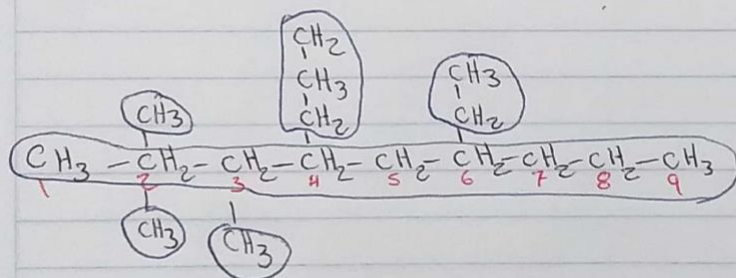 CH2
CH3
CH2
CH3
CH2
CH3
CH3 - CH2 - CH2 - CH2 - CH2 - CH2 - CH2 - CH2 - CH3
1 2 3 4 5 6 7 8 9
CH3
CH3